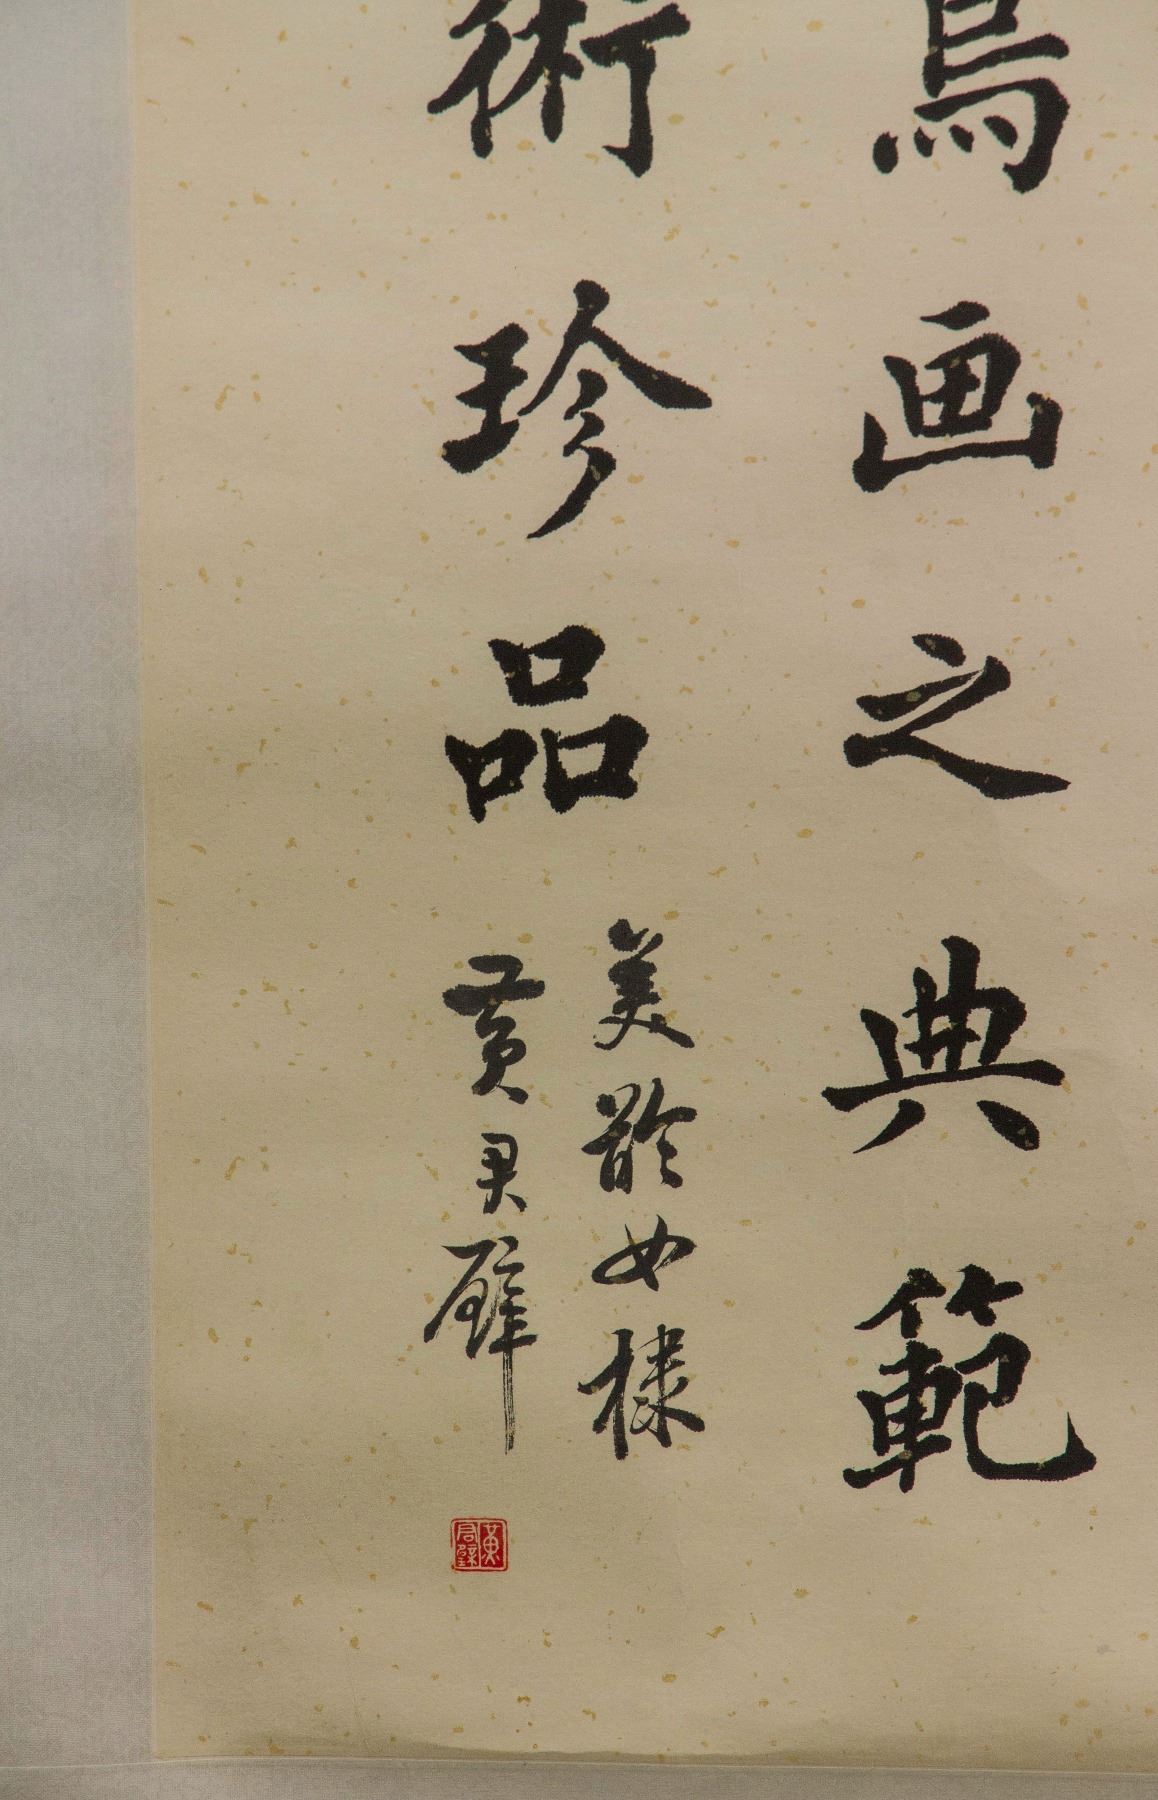 鳥画之典範
術珍品
美齡女棣
黃君璧
黃君璧